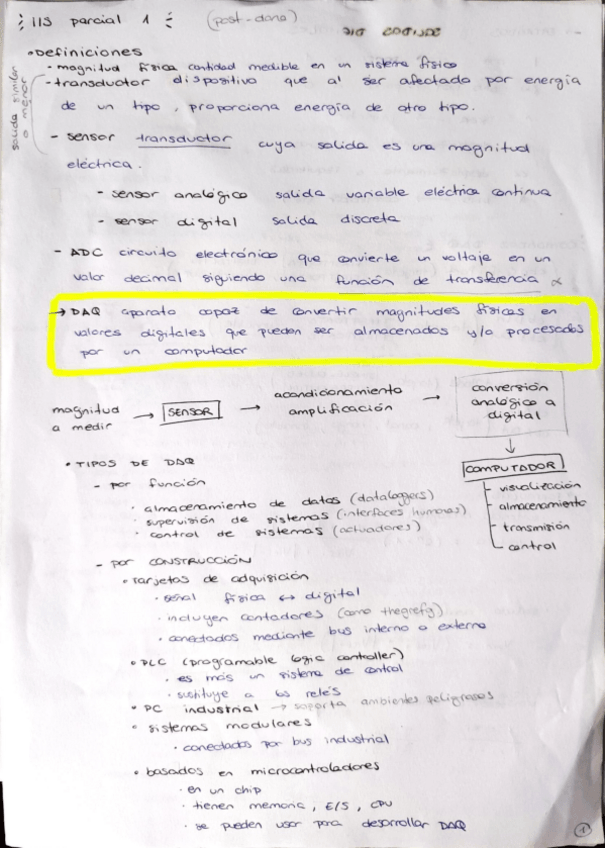 IIS parcial 1 (post-dana)
• Definiciones
- magnitud física cantidad medible en un sistema físico
- transductor dispositivo que al ser afectado por energía
de un tipo, proporciona energía de otro tipo.
salida similar
o menor
- sensor transductor cuya salida es una magnitud
eléctrica.
- sensor analógico salida variable eléctrica continua
- sensor digital salida discreta
- ADC circuito electrónico que convierte un voltaje en un
valor decimal siguiendo una función de transferencia α
→ DAQ aparato capaz de convertir magnitudes físicas en
valores digitales que pueden ser almacenados y/o procesados
por un computador
magnitud
a medir → SENSOR → acondicionamiento
amplificación → conversión
analógico a
digital
↓
COMPUTADOR
- visualización
- almacenamiento
- transmisión
- control
• TIPOS DE DAQ
- por función
• almacenamiento de datos (dataloggers)
• supervisión de sistemas (interfaces humanas)
• control de sistemas (actuadores)
- por CONSTRUCCIÓN
• Tarjetas de adquisición
• señal física ↔ digital
• incluyen contadores (como thegrefg)
• conectados mediante bus interno o externo
• PLC (programable logic controller)
• es más un sistema de control
• sustituye a los relés
• PC industrial → soporta ambientes peligrosos
• sistemas modulares
• conectados por bus industrial
• basados en microcontroladores
• en un chip
• tienen memoria, E/S, CPU
• se pueden usar para desarrollar DAQ
1